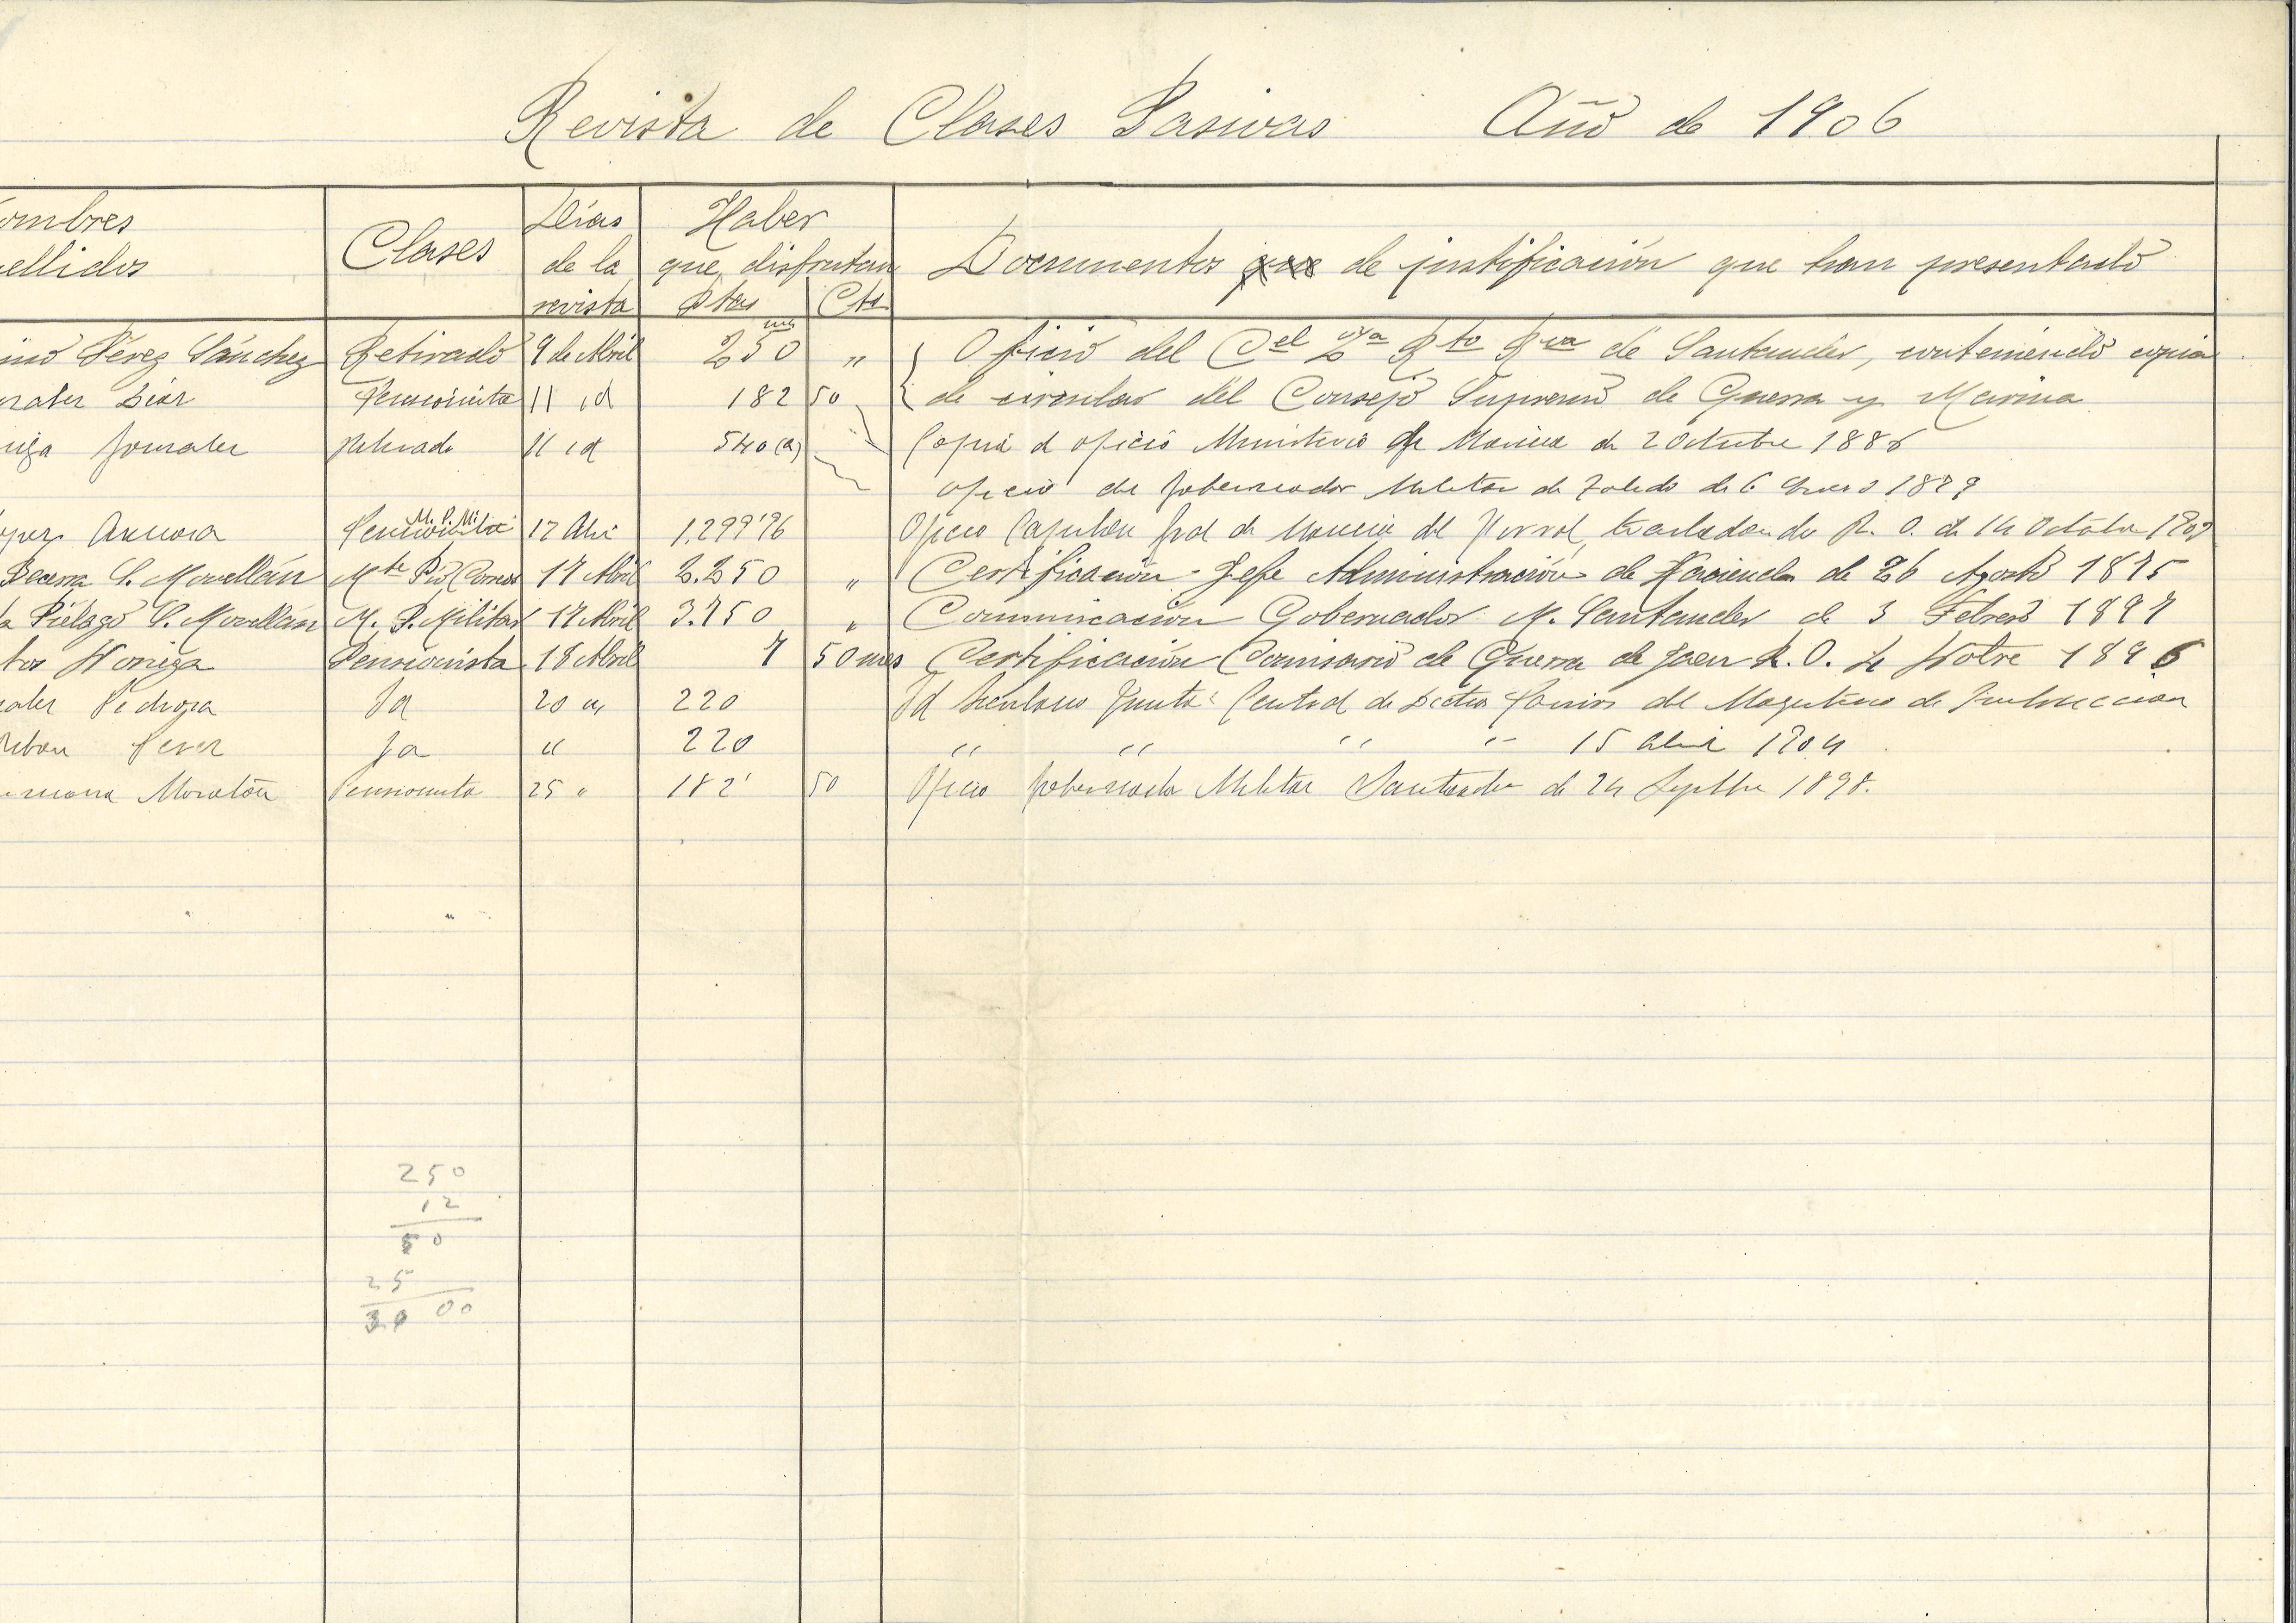 Revista de Clases Pasivas Año de 1906
ombres
ellidos
Clases
Días
de la
revista
Haber
que disfrutan
Ptas Cts
Documentos que de justificación que han presentado
Pérez Sánchez Retirado 9 de Abril 250 " Oficio del Cel Rto Rva de Santander, conteniendo copia
Pensionista 11 id 182 50 de circular del Consejo Supremo de Guerra y Marina
Retirado 11 id 540 (a) Copia d oficio Ministerio de Marina de 2 Octubre 1886
oficio del Gobernador Militar de Toledo de 6 Enero 1879
M. P. Mi.
Pensionista 17 Abri 1,299'96 Oficio Capitan Gral de Marina del Ferrol, trasladando R. O. de 14 Octubre 1902
Becerra G. Movellán Mte Pio Correos 17 Abril 2.250 " Certificación Jefe Administración de Hacienda de 26 Agosto 1875
Piélago G. Movellán M. P. Militar 17 Abril 3.750 " Comunicación Gobernador M. Santander de 3 Febrero 1897
tos Noriega Pensionista 18 Abril 7 50 mes Certificación Comisario de Guerra de Jaen R. O. 4 Notre 1896
Pedrosa Id 20 " 220 Id Secretario Junta Central de Dctos Pasivos del Magisterio de Instruccion
Perez Id " 220 " " " " 15 Abril 1904
Moratón Pensionista 25 " 182' 50 Oficio Gobernador Militar Santander de 24 Septbre 1898.
250
12
50
25
30 00